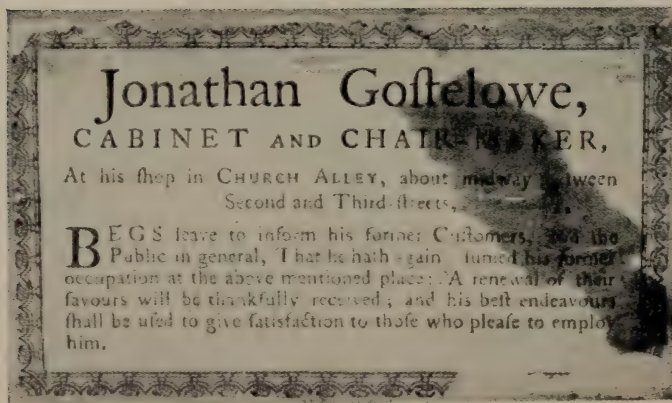 Jonathan Goſtelowe,
CABINET AND CHAIR-MAKER,
At his ſhop in CHURCH ALLEY, about midway between
Second and Third-ſtreets,
BEGS leave to inform his former Cuſtomers, and the
Public in general, That he hath again his former
occupation at the above mentioned place: A renewal of their
favours will be thankfully received; and his beſt endeavours
ſhall be uſed to give ſatisfaction to thoſe who pleaſe to employ
him.